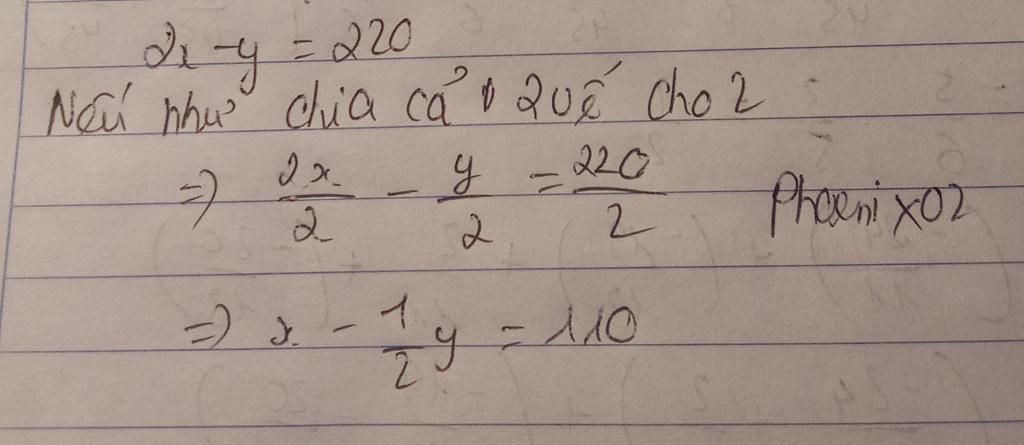 2x - y = 220
Nếu như chia cả 2 vế cho 2
=> 2x/2 - y/2 = 220/2 Phoenix02
=> x - 1/2 y = 110